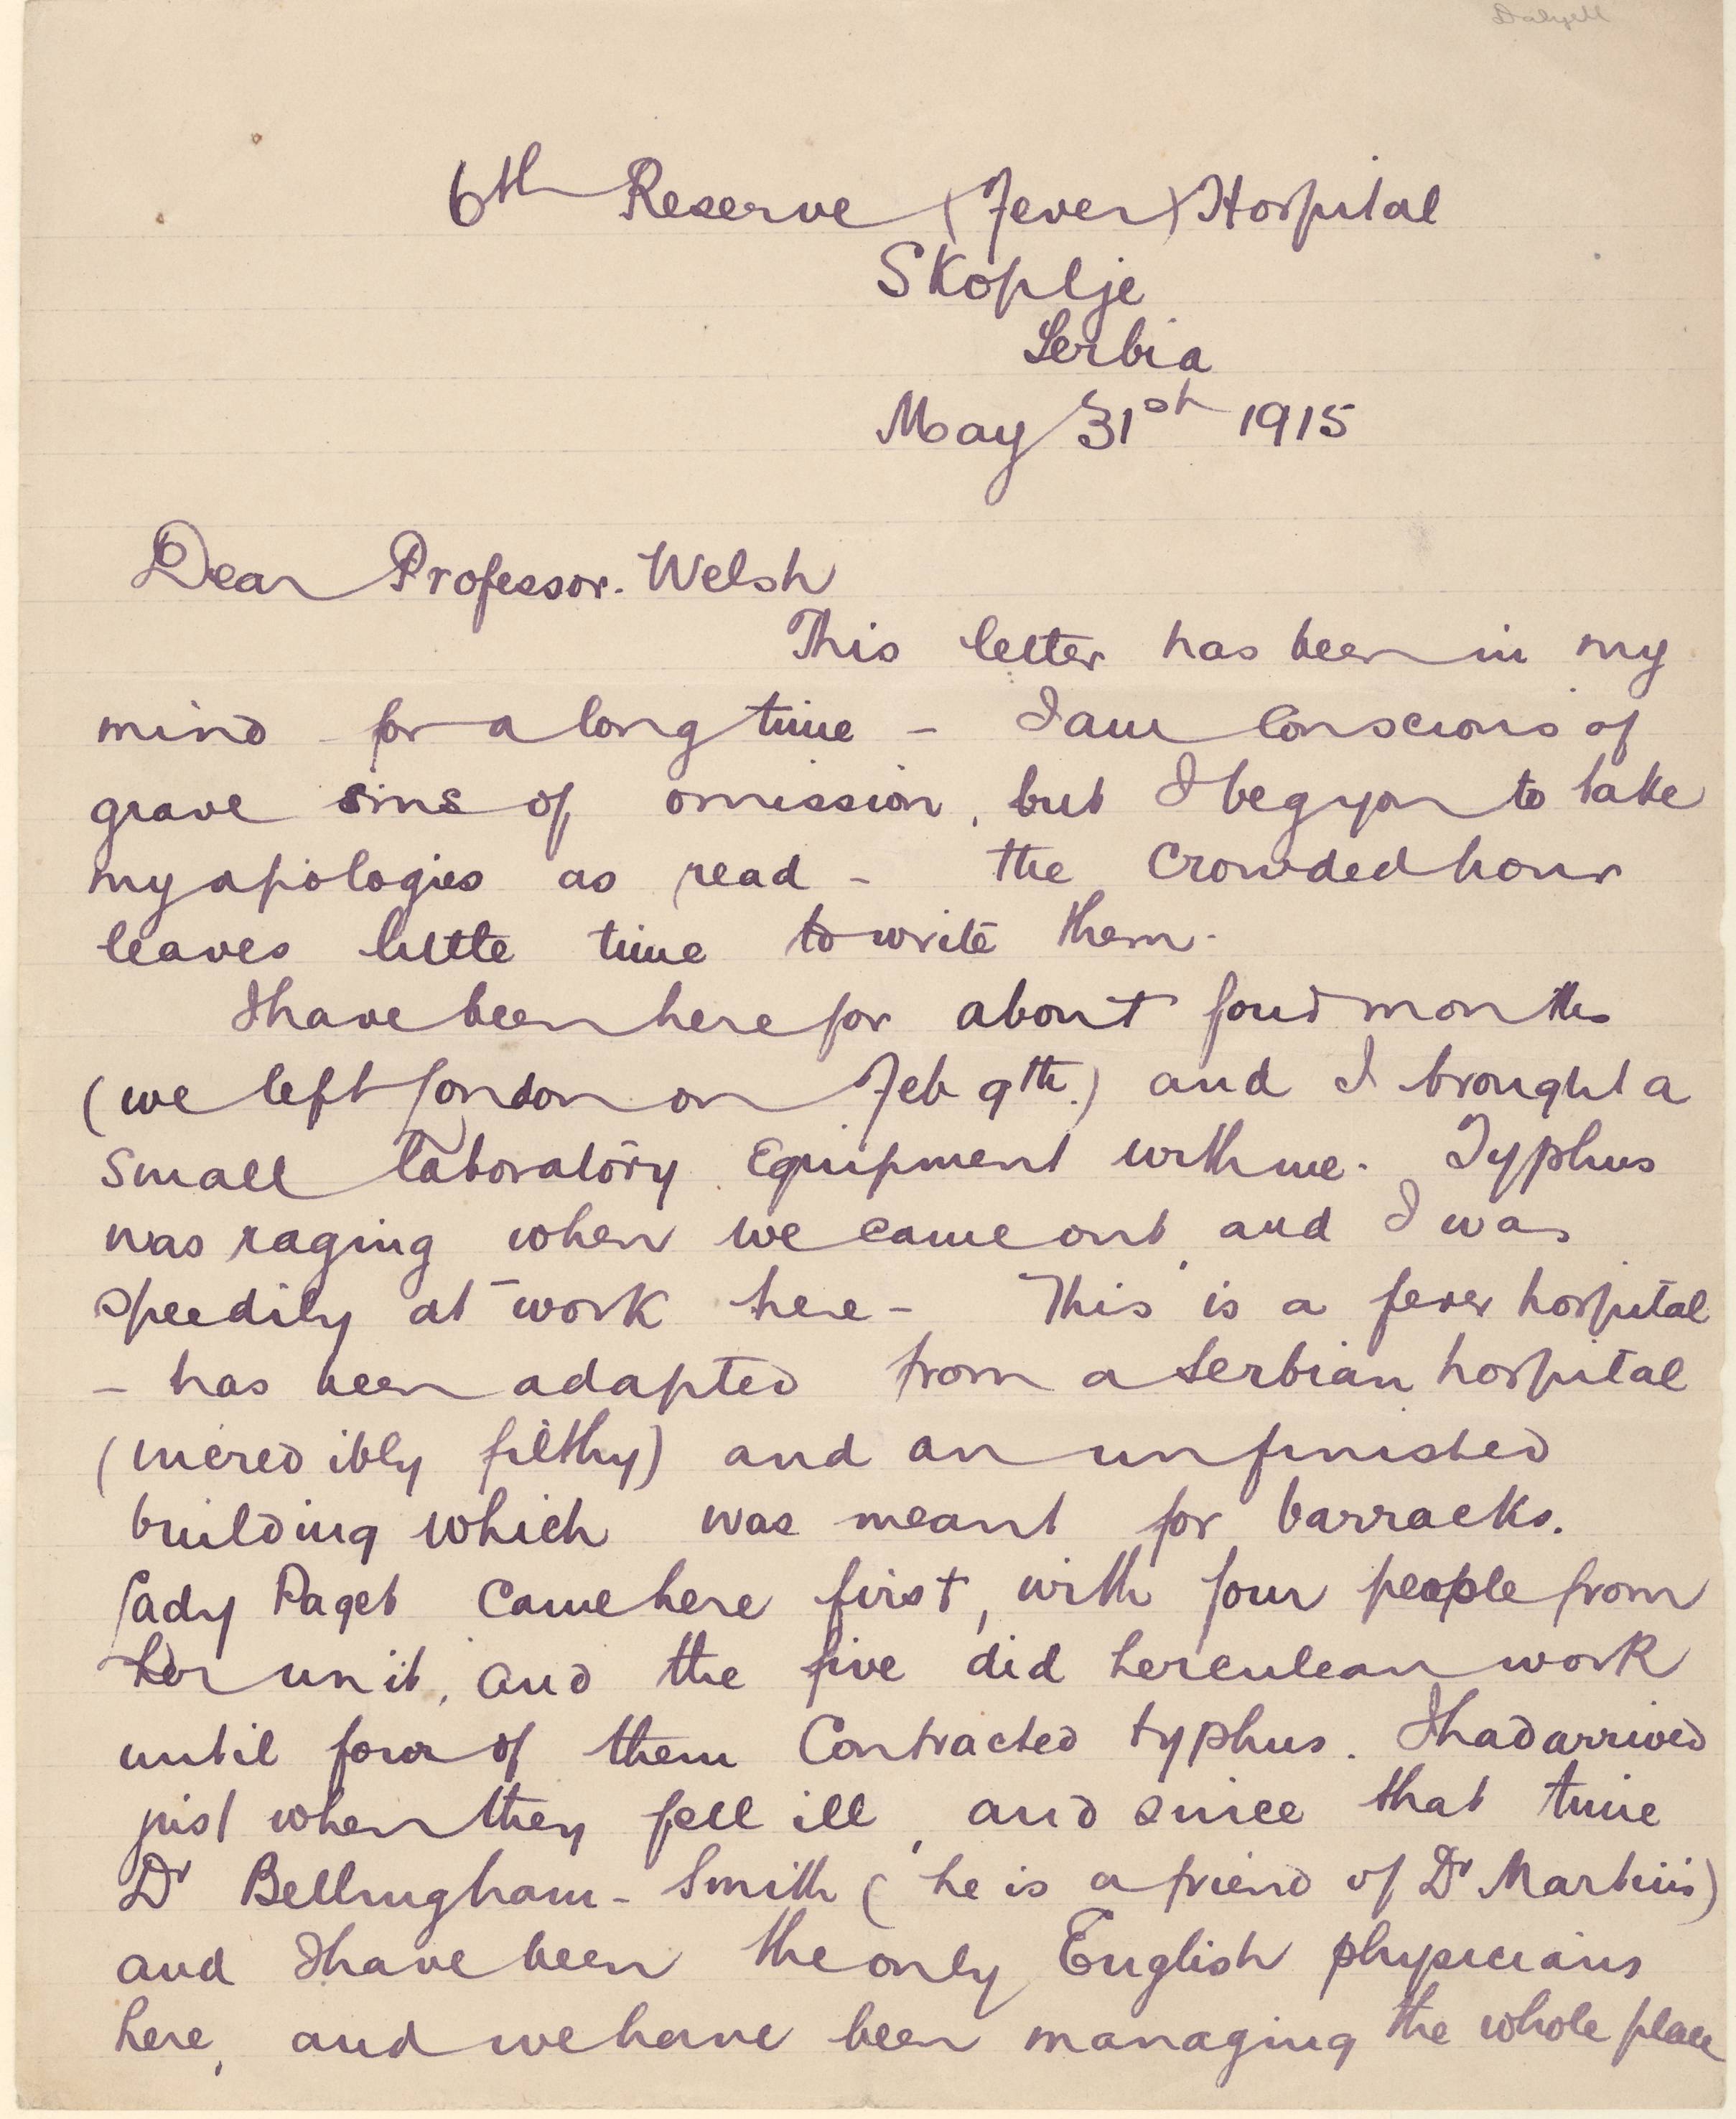 Dalyell
6th Reserve (Fever) Hospital
Skoplje
Serbia
May 31st 1915
Dear Professor. Welsh
This letter has been in my
mind for a long time - I am conscious of
grave sins of omission, but I beg you to take
my apologies as read - the crowded hour
leaves little time to write them.
I have been here for about four months
(we left London on Feb 9th.) and I brought a
small laboratory equipment with me. Typhus
was raging when we came out, and I was
speedily at work here - This is a fever hospital
- has been adapted from a Serbian hospital
(incredibly filthy) and an unfinished
building which was meant for barracks.
Lady Paget came here first, with four people from
her unit, and the five did herculean work
until four of them contracted typhus. I had arrived
just when they fell ill, and since that time
Dr Bellingham-Smith (he is a friend of Dr Martin's)
and I have been the only English physicians
here, and we have been managing the whole place